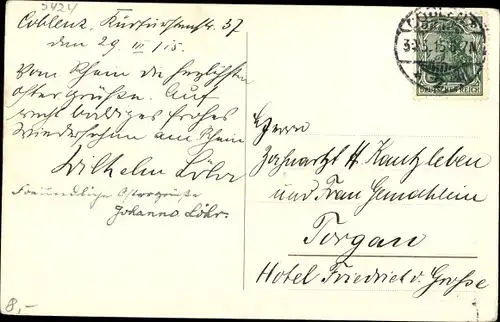 5424
Coblenz, Kurfürstenstr. 57
den 29 III /15.
Vom Rhein die herzlichsten
Ostergrüße. Auf
recht baldiges frohes
Wiedersehen am Rhein
Wilhelm Löhr
Freundliche Ostergrüße
Johanna Löhr.
8,-
DEUTSCHES REICH
Herrn
Zahnarzt H Kantzleben
und Frau Gemahlin
Torgau
Hotel Friedrich d. Große